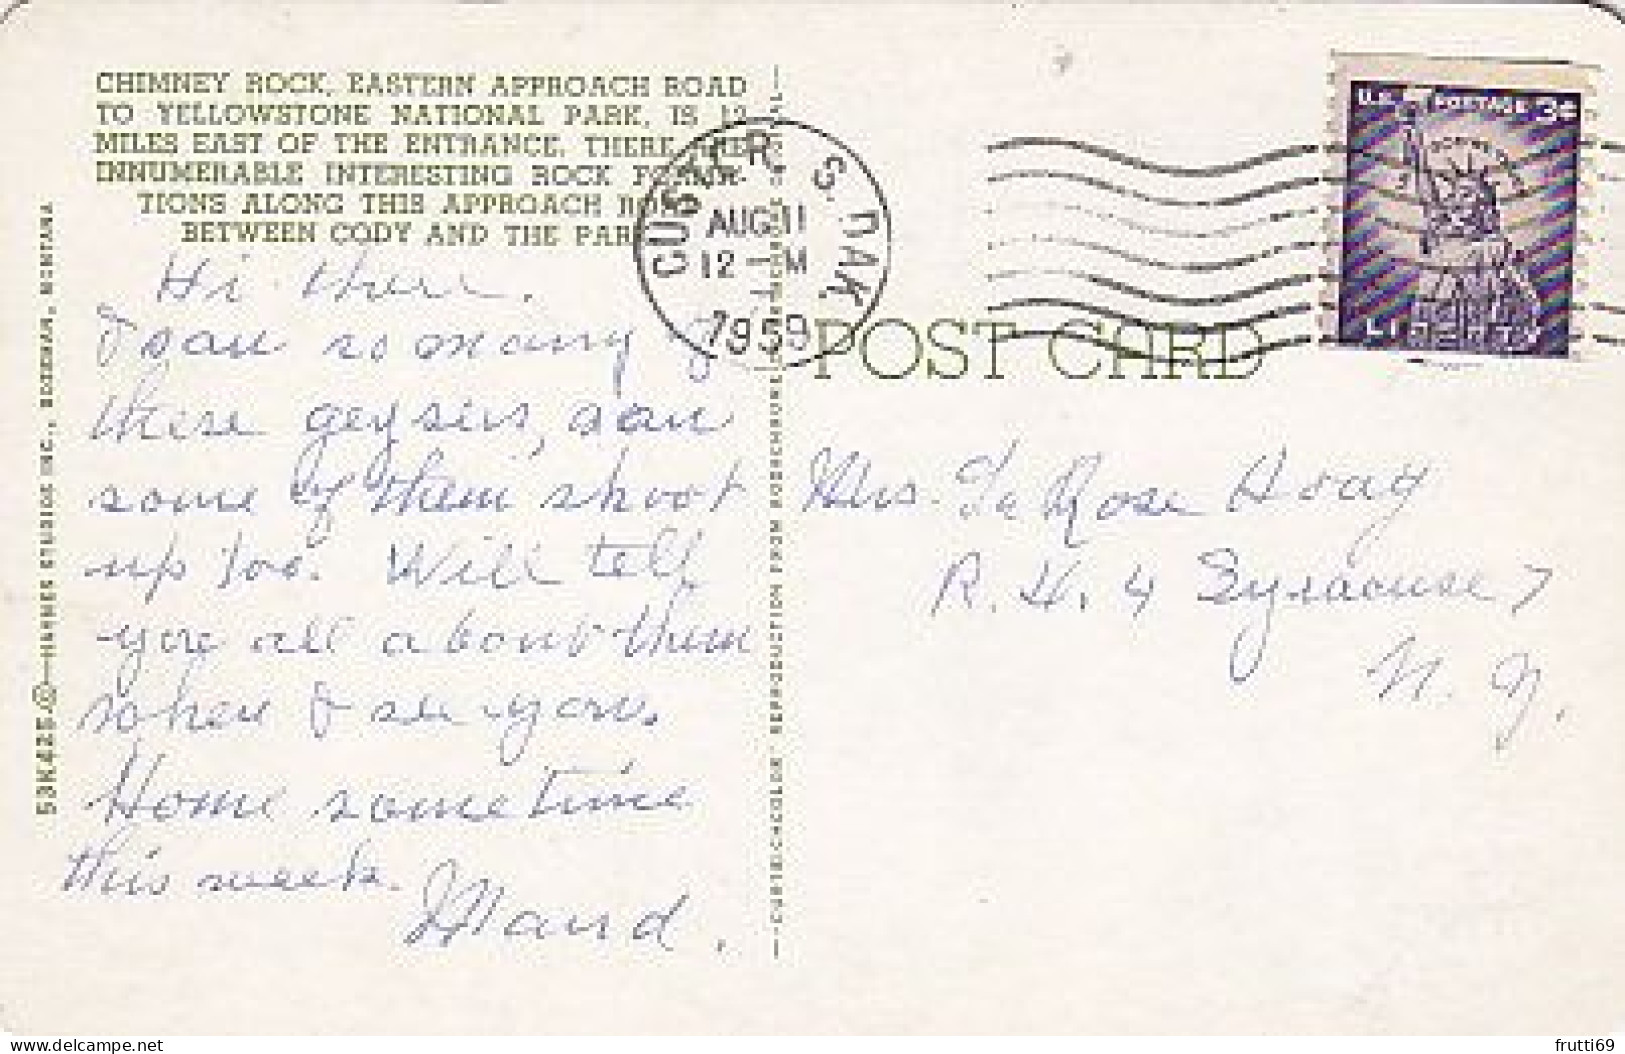 CHIMNEY ROCK, EASTERN APPROACH ROAD
TO YELLOWSTONE NATIONAL PARK, IS 12
MILES EAST OF THE ENTRANCE. THERE ARE
INNUMERABLE INTERESTING ROCK FORMA-
TIONS ALONG THIS APPROACH ROAD
BETWEEN CODY AND THE PARK
Hi there,
I saw so many of
these geysers, saw
some of them shoot
up too. Will tell
you all about them
when I see you.
Home sometime
this week.
Maud.
53K425-©—HAYNES STUDIOS INC., BOZEMAN, MONTANA
CUSTER S. DAK.
AUG 11
12 M
1959
U.S. POSTAGE 3¢
IN GOD WE TRUST
LIBERTY
POST CARD
Mrs. La Rose Hoag
R. H. 4 Syracuse 7
N. Y.
"CURTEICHCOLOR" REPRODUCTION FROM KODACHROME
delcampe.net
frutti69